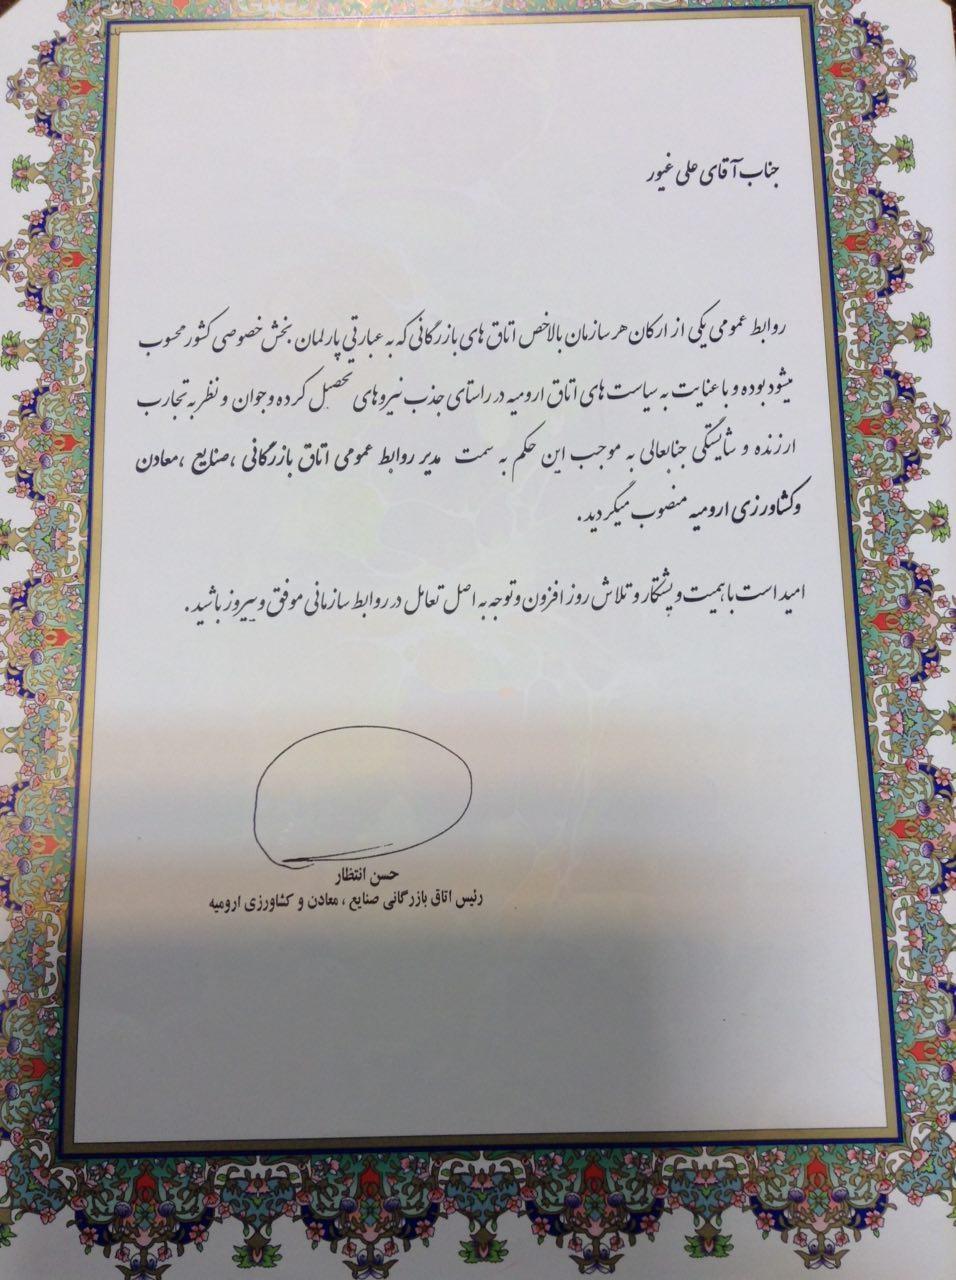 جناب آقای علی غیور
روابط عمومی یکی از ارکان هر سازمان بالاخص اتاق های بازرگانی که به عبارتی پارلمان بخش خصوصی کشور محسوب
میشود بوده و با عنایت به سیاست های اتاق ارومیه در راستای جذب نیروهای تحصیل کرده و جوان و نظر به تجارب
ارزنده و شایستگی جنابعالی به موجب این حکم به سمت مدیر روابط عمومی اتاق بازرگانی ، صنایع ، معادن
و کشاورزی ارومیه منصوب میگردید .
امید است با همیت و پشتکار و تلاش روز افزون و توجه به اصل تعامل در روابط سازمانی موفق و پیروز باشید .
حسن انتظار
رئیس اتاق بازرگانی صنایع ، معادن و کشاورزی ارومیه